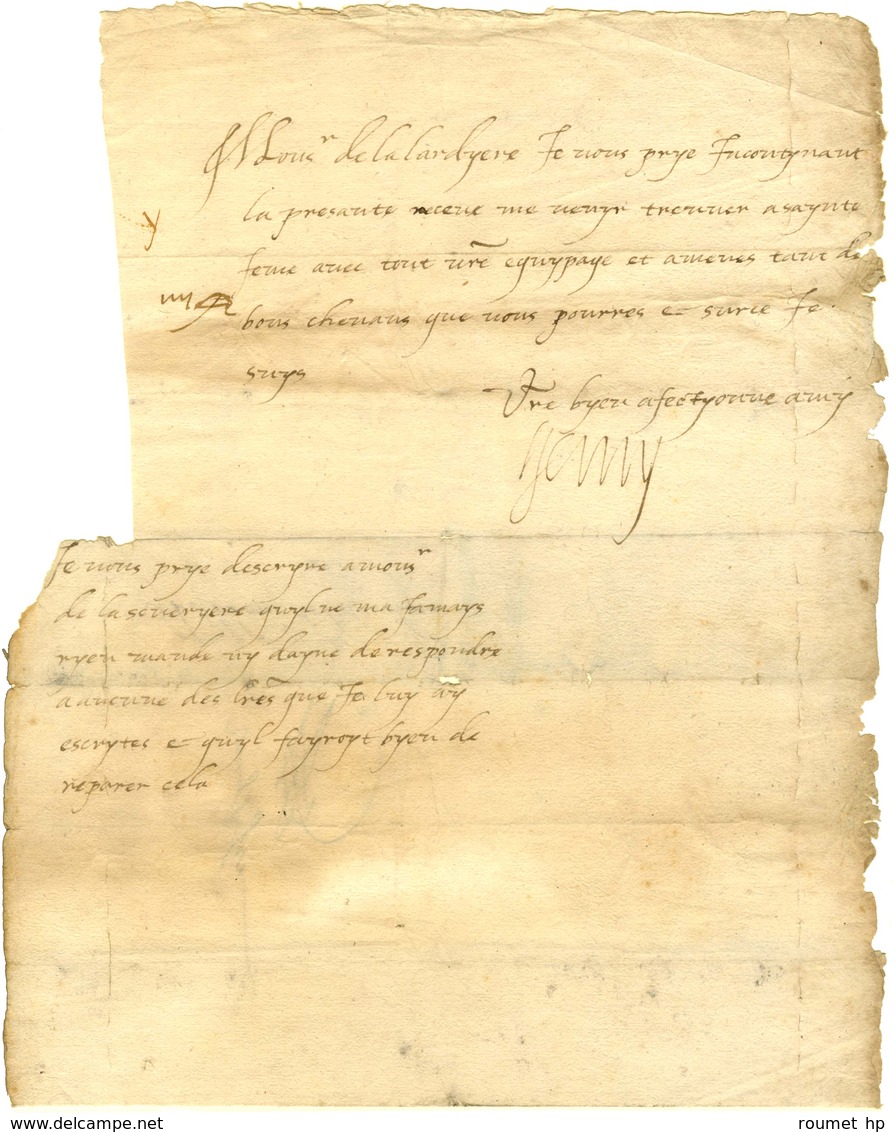 Mons^r de la lardyere Je vous prye Incontynant
la presante receue me venyr treuver a saynte
feme avec tout vr̃e equypage et amenes tant de
bons chevaus que vous pourres et surce Je
suys
Vr̃e byen afectyonne amy
Henry
Je vous prye descryre a mons^r
de la severyere quyl ne ma Jamays
ryen mande ny dayne de respondre
a aucune des lr̃es que Je luy ay
escrytes et quyl fayroyt byen de
reparer cela
roumet hp